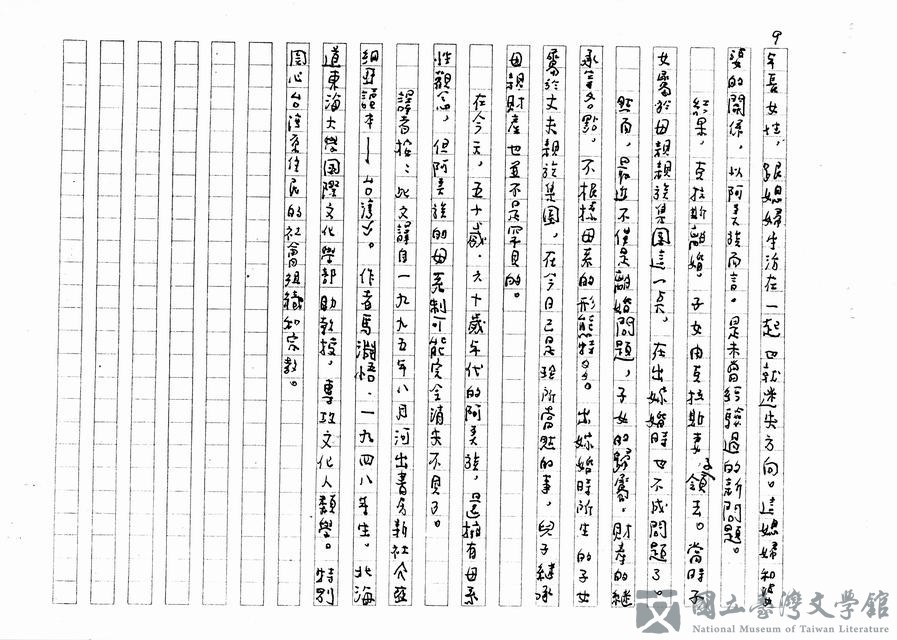 9
年長女性,跟媳婦生活在一起也就迷失方向。這媳婦和婆
婆的關係,以阿美族而言。是未曾經驗過的新問題。
結果,克拉斯離婚。子女由克拉斯妻子領去。當時子
女屬於母親親族集團這一點,在出嫁婚時也不成問題了。
然而,最近不僅是離婚問題,子女的歸屬,財產的繼
承等各點,不根據母系的形態特多。出嫁婚時所生的子女
屬於丈夫親族集團,在今日已是理所當然的事,兒子繼承
母親財產也並不是罕見的。
在今天,五十歲、六十歲年代的阿美族,還擁有母系
性觀念,但阿美族的母系制可能完全消失不見了。
譯者按:此文譯自一九九五年八月河出書房新社介亞
細亞讀本—台灣》。作者馬淵悟,一九四八年生,北海
道東海大學國際文化學部助教授,專攻文化人類學。特別
關心台灣原住民的社會組織和宗教。
國立臺灣文學館
National Museum of Taiwan Literature